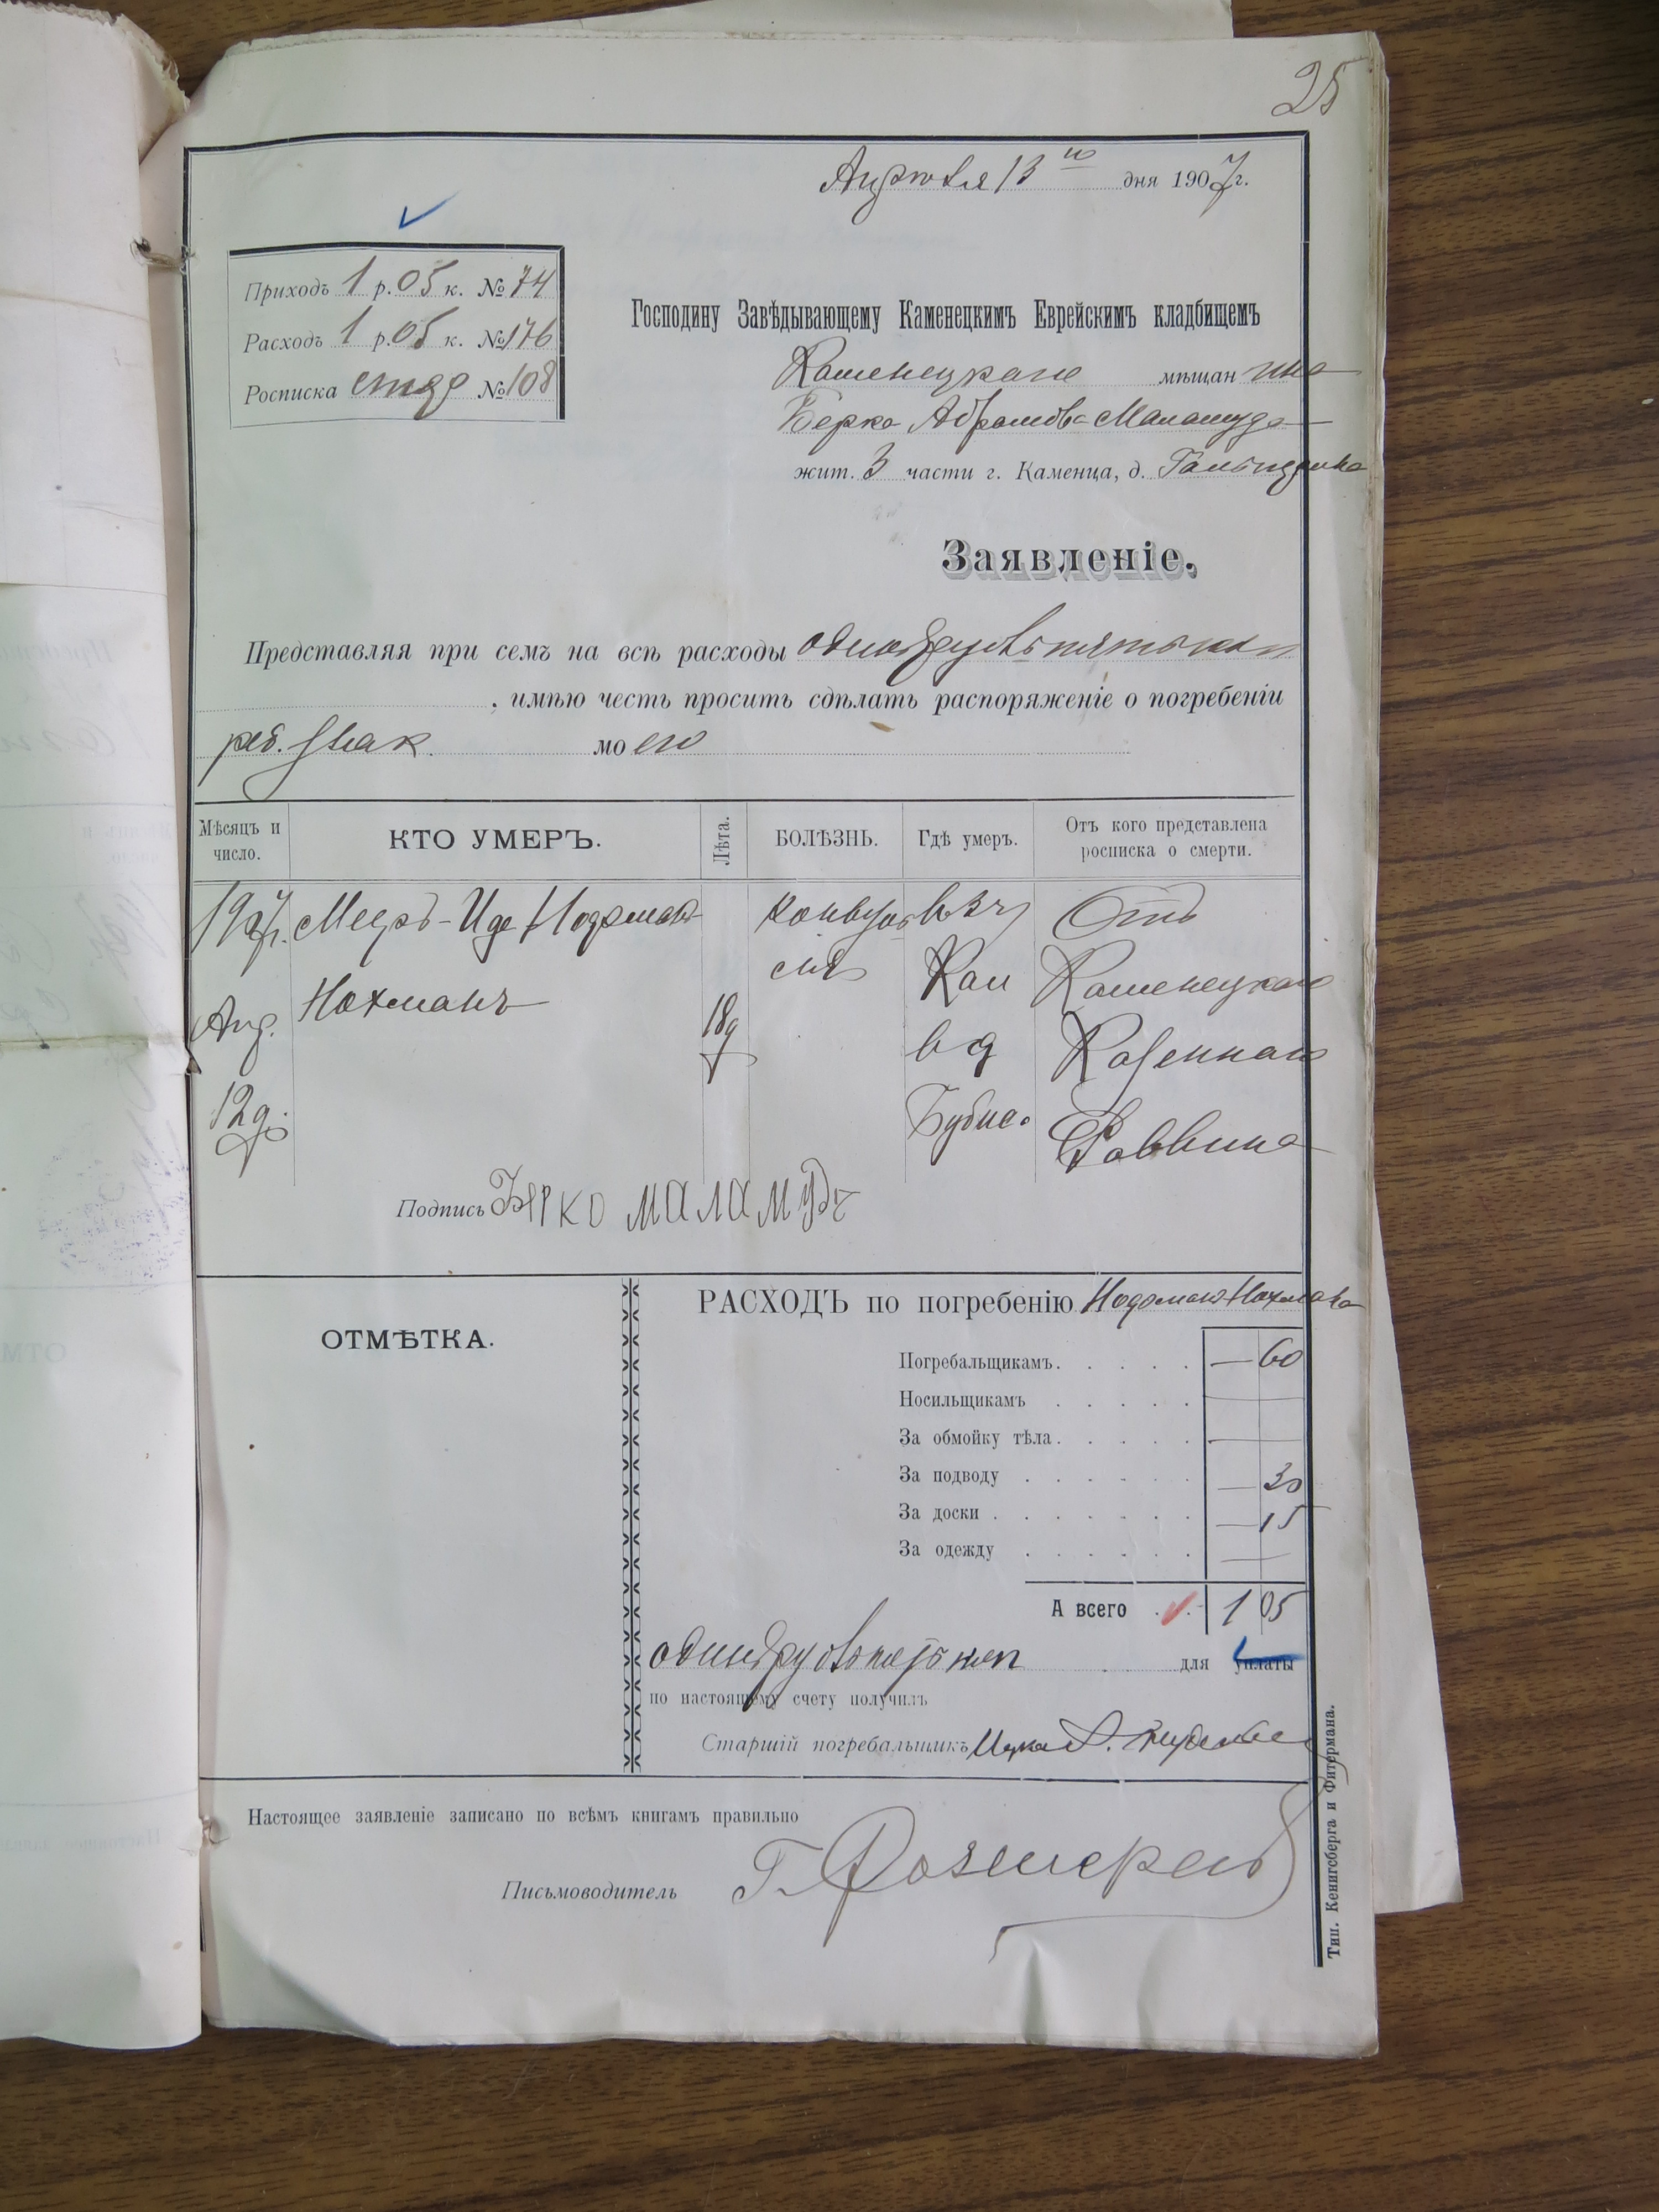 25
Апреля 13го дня 1907 г.
Приходъ 1 р. 05 к. № 74
Расходъ 1 р. 05 к. № 176
Росписка № 108
Господину Завѣдывающему Каменецкимъ Еврейскимъ кладбищемъ
Каменецкаго мѣщанина
Берко Абрамова Маламуда
жит. 3 части г. Каменца, д.
Заявленіе.
Представляя при семъ на всѣ расходы одинъ рубль пять коп
, имѣю честь просить сдѣлать распоряженіе о погребеніи
реб. моего
Мѣсяцъ и число.
КТО УМЕРЪ.
Лѣта.
БОЛѢЗНЬ.
Гдѣ умеръ.
Отъ кого представлена росписка о смерти.
1907 г.
Апр.
12 д.
Нохманъ
18 д
въ 3 ч
Кам
в д
Отъ
Каменецкаго
Казеннаго
Раввина
Подпись Берко Маламудъ
ОТМѢТКА.
РАСХОДЪ по погребенію
Погребальщикамъ. — 60
Носильщикамъ —
За обмойку тѣла. —
За подводу — 30
За доски — 15
За одежду —
А всего 1 05
одинъ рубль пять коп для уплаты
по настоящему счету получилъ
Старшій погребальщикъ
Настоящее заявленіе записано по всѣмъ книгамъ правильно
Письмоводитель Г.
Тип. Кенигсберга и Фитермана.